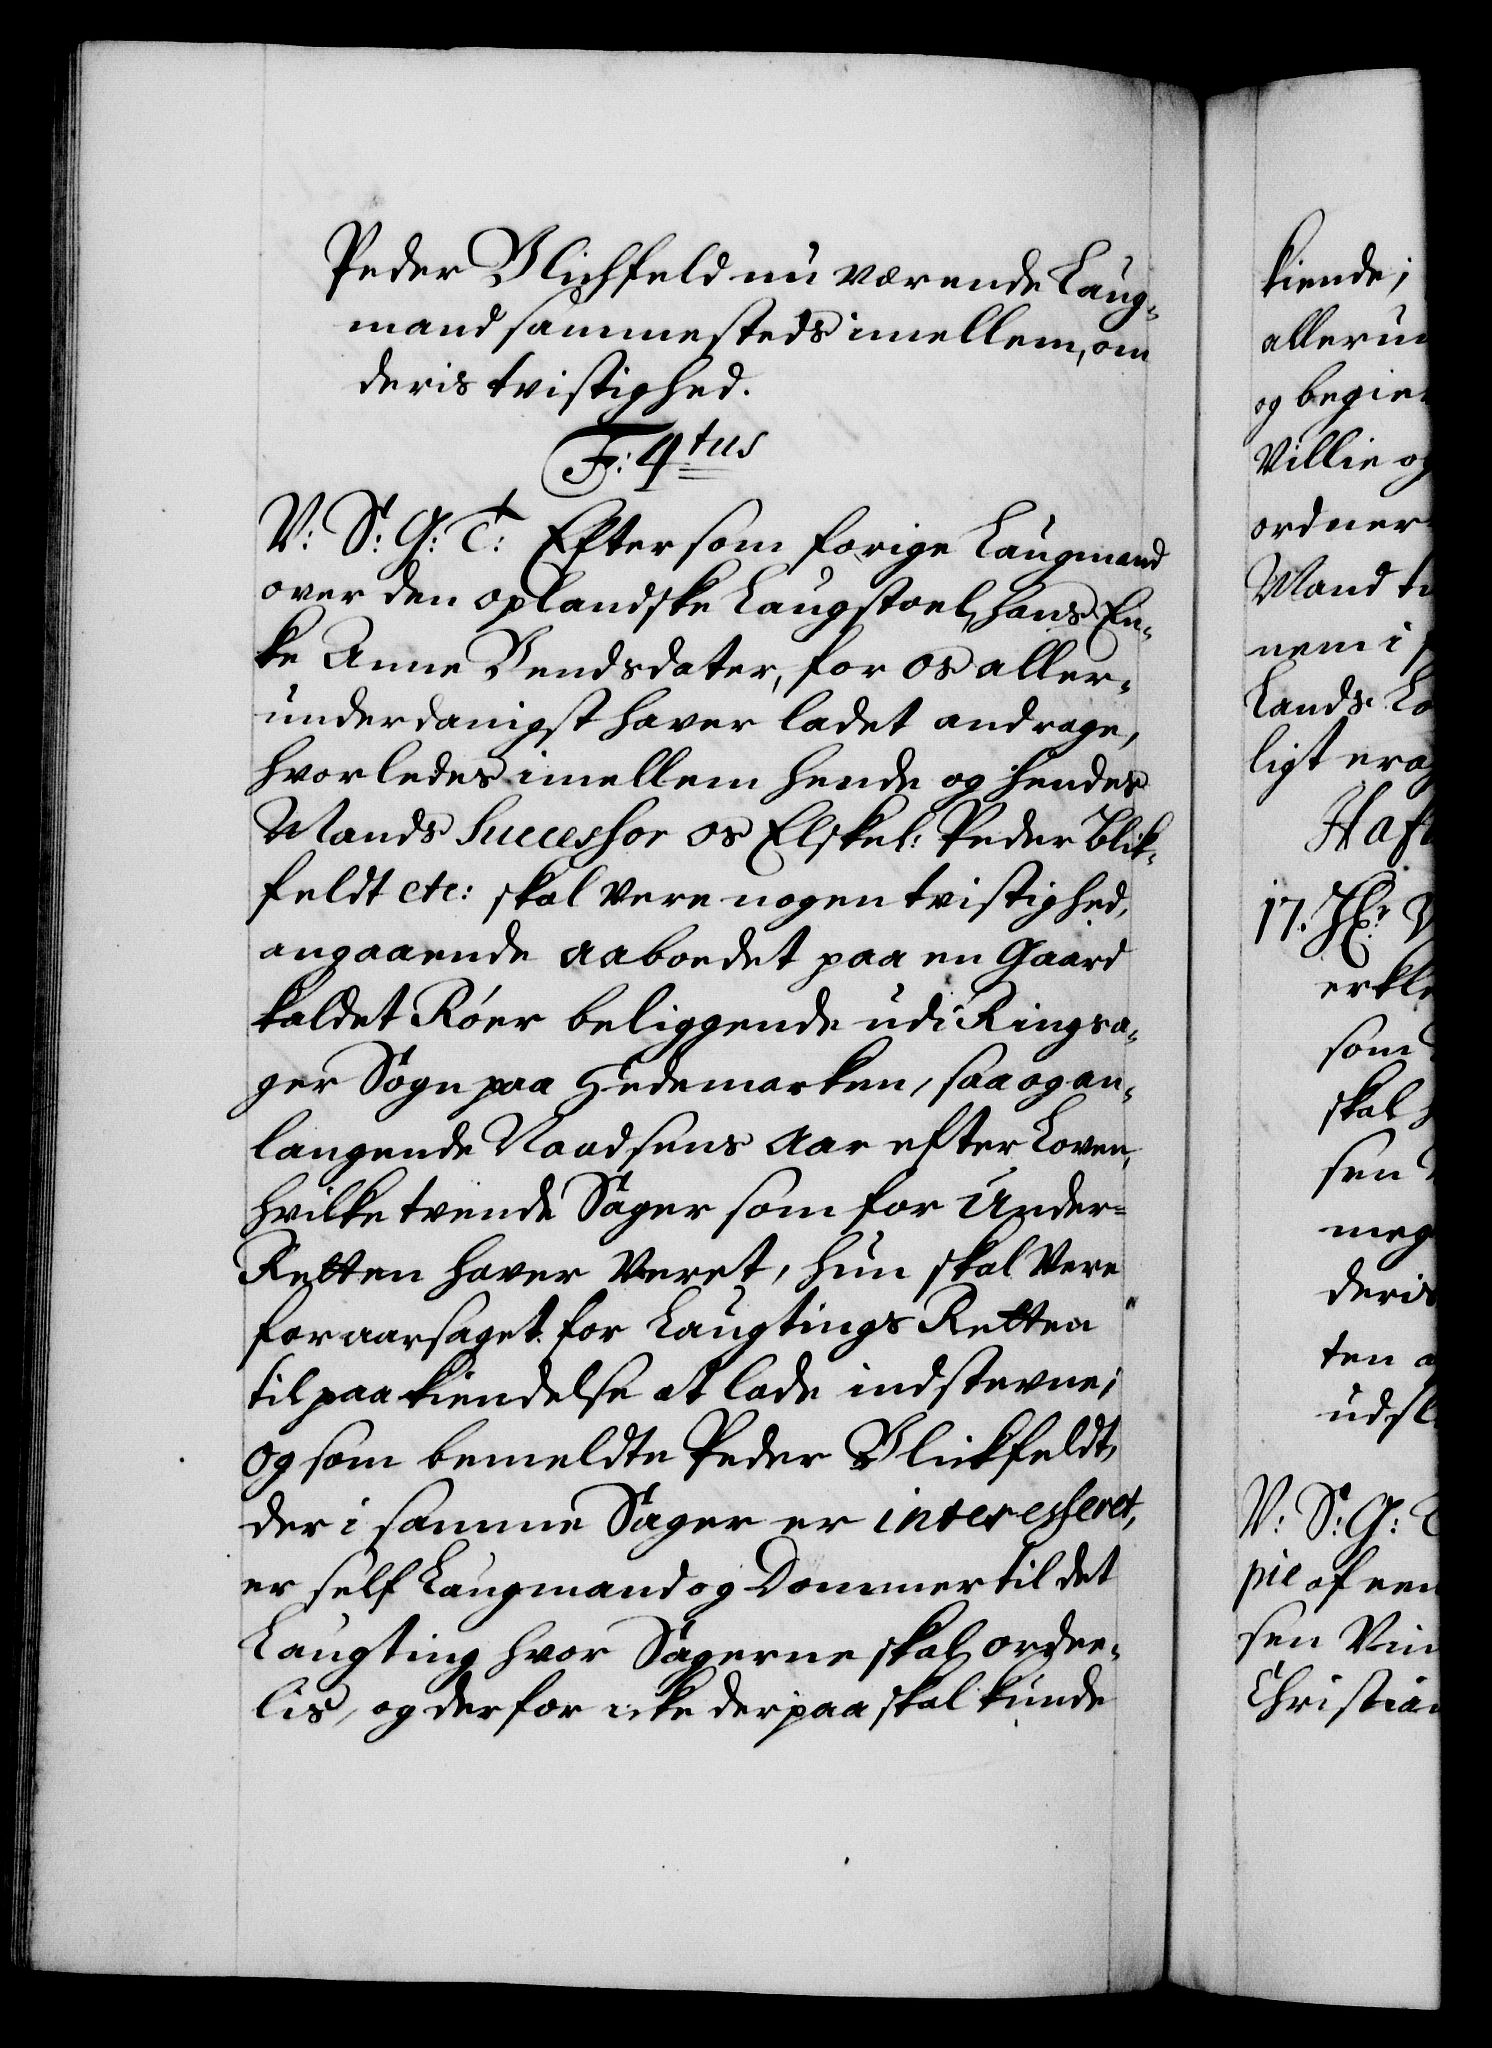 Peder Blichfeld nu værende Laug-
mand sammesteds imellem, om
deris tvistighed.
F: 4tus
V: S: G: T: Eftersom forige Laugmand
over den oplandske Laugstoel, hans En-
ke Anne Bendsdater, for os aller-
underdanigst haver ladet andrage,
hvorledes imellem hende og hendes
Mands Successor os Elskel: Peder Blik-
feldt etc: skal vere nogen tvistighed,
angaaende aaboedet paa en Gaard
kaldet Róer beliggende udi Ringsa-
ger Sogn paa Hedemarken, saa og an-
langende Naadsens Aar efter Loven,
hvilke tvende Sager som for Under-
Retten haver Veret, hun skal Vere
foraarsaget for Laugtings Retten
til paakiendelse at lade indstevne;
og som bemeldte Peder Blickfeldt,
der i samme Sager er interesseret,
er self Laugmand og Dommer til det
Laugting hvor Sagerne skal ordee-
lis, og derfor icke derpaa skal kunde
kiende;
alleru
og begie
Villie og
ordner
Mand ti
nem i
Lands Lo
ligt erag
Haf
17. Hr. V
erkle
som
skal
sen
meg
deris
ten a
udsl
V: S: G: T
pie af een
sen Vin
Christian